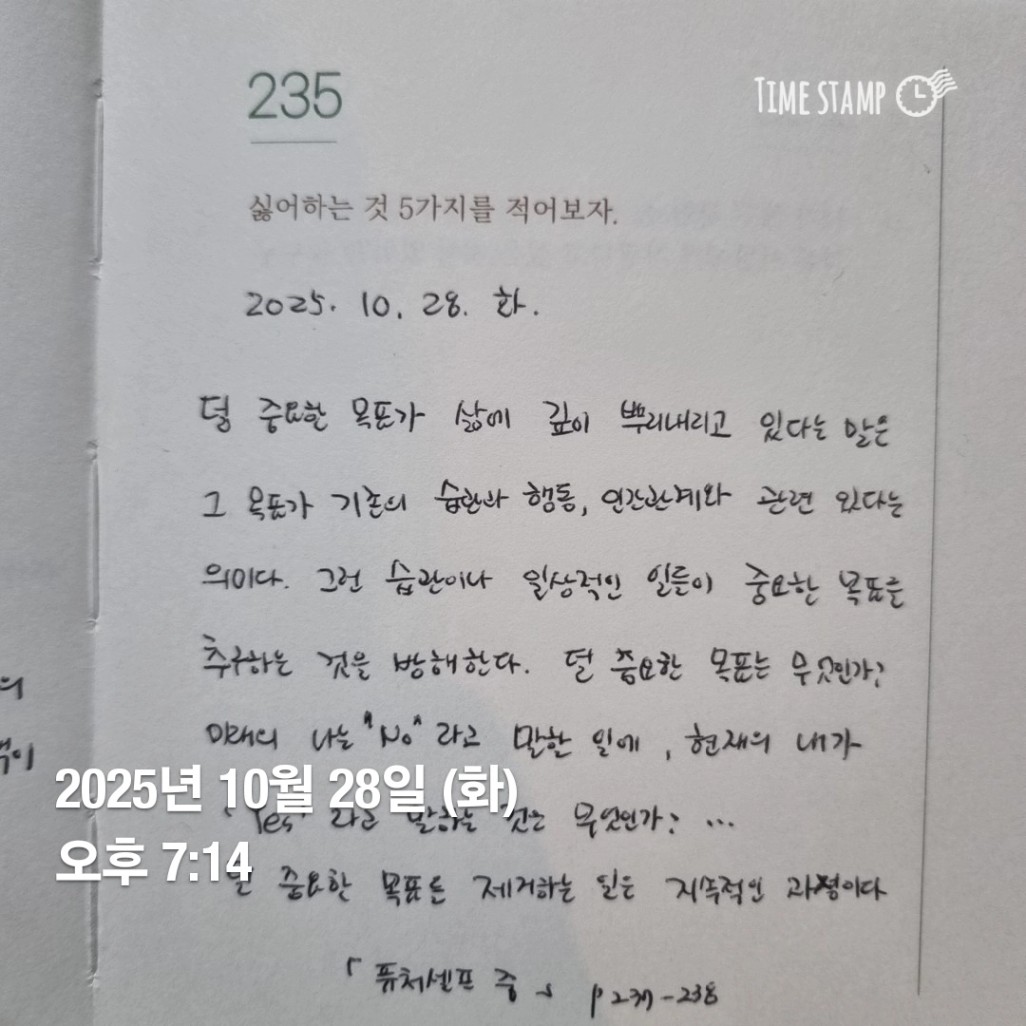 235
TIME STAMP
싫어하는 것 5가지를 적어보자.
2025. 10. 28. 화.
덜 중요한 목표가 삶에 깊이 뿌리내리고 있다는 말은
그 목표가 기존의 습관과 행동, 인간관계와 관련 있다는
의미다. 그런 습관이나 일상적인 일들이 중요한 목표를
추구하는 것을 방해한다. 덜 중요한 목표는 무엇인가?
미래의 나는 "No" 라고 말한 일에, 현재의 내가
"Yes" 라고 말하는 것은 무엇인가? ...
덜 중요한 목표를 제거하는 일은 지속적인 과정이다
「퓨처셀프 중」 p 237-238
의
2025년 10월 28일 (화)
오후 7:14